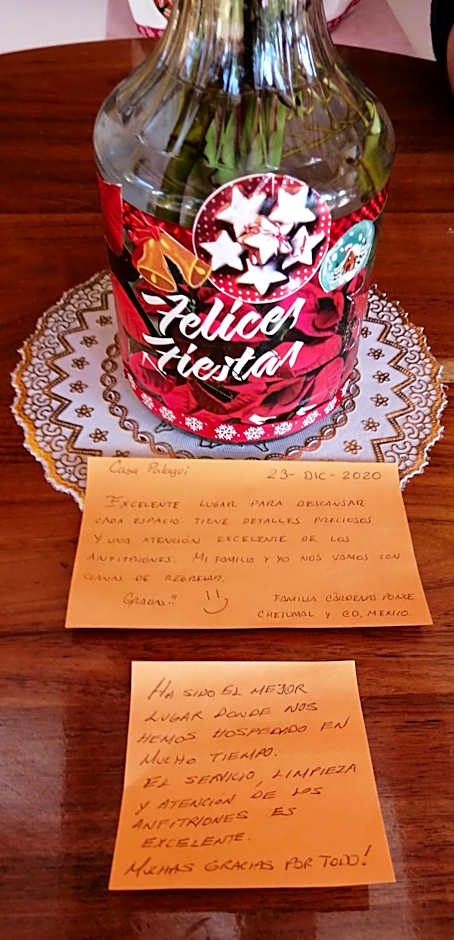 Felices
Fiestas
Casa Palagui 23- DIC - 2020
EXCELENTE LUGAR PARA DESCANSAR
CADA ESPACIO TIENE DETALLES PRECIOSOS
Y UNA ATENCIÓN EXCELENTE DE LOS
ANFITRIONES. MI FAMILIA Y YO NOS VAMOS CON
GANAS DE REGRESAR.
GRACIAS!!
FAMILIA CÁRDENAS PONCE
CHETUMAL Y CD. MEXICO.
HA SIDO EL MEJOR
LUGAR DONDE NOS
HEMOS HOSPEDADO EN
MUCHO TIEMPO.
EL SERVICIO, LIMPIEZA
Y ATENCION DE LOS
ANFITRIONES ES
EXCELENTE.
MUCHAS GRACIAS POR TODO!